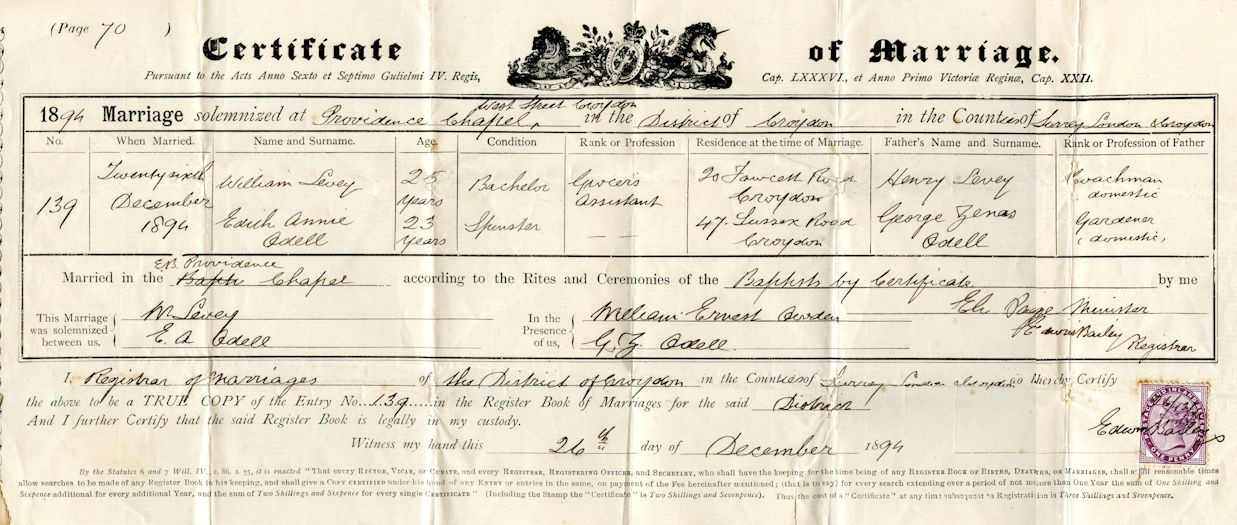 (Page 70 )
Certificate of Marriage.
Pursuant to the Acts Anno Sexto et Septimo Gulielmi IV. Regis, Cap. LXXXVI., et Anno Primo Victoriæ Reginæ, Cap. XXII.
West Street Croydon
1894 Marriage solemnized at Providence Chapel, in the District of Croydon in the Counties of Surrey London & Croydon
No. When Married. Name and Surname. Age. Condition Rank or Profession Residence at the time of Marriage. Father's Name and Surname. Rank or Profession of Father
139
Twenty sixth
December
1894
William Levey
25
years
Bachelor
Grocer's
Assistant
20 Fawcett Road
Croydon
Henry Levey
Coachman
domestic
Edith Annie
Odell
23
years
Spinster
— —
47. Sussex Road
Croydon
George Zenas
Odell
Gardener
(domestic)
E.B. Providence
Married in the Chapel according to the Rites and Ceremonies of the Baptists by Certificate by me
This Marriage
was solemnized
between us.
W Levey
E. A Odell
In the
Presence
of us,
William Ernest
G. Z. Odell.
Eli Minister
Edwin Bailey Registrar
I, Registrar of Marriages of the District of Croydon in the Counties of Surrey London & Croydon do hereby Certify
the above to be a TRUE COPY of the Entry No. 139 in the Register Book of Marriages for the said District
And I further Certify that the said Register Book is legally in my custody.
Witness my hand this 26th day of December 1894
Edwin Bailey
By the Statutes 6 and 7 Will. IV., c. 86. s. 35, it is enacted "That every Rector, Vicar, or Curate, and every Registrar, Registering Officer, and Secretary, who shall have the keeping for the time being of any Register Book of Births, Deaths, or Marriages, shall at all reasonable times
allow searches to be made of any Register Book in his keeping, and shall give a Copy certified under his hand of any Entry or entries in the same, on payment of the Fee hereinafter mentioned; (that is to say) for every search extending over a period of not more than One Year the sum of One Shilling and
Sixpence additional for every additional Year, and the sum of Two Shillings and Sixpence for every single Certificate" (Including the Stamp the "Certificate" is Two Shillings and Sevenpence). Thus the cost of a "Certificate" at any time subsequent to Registration is Three Shillings and Sevenpence.